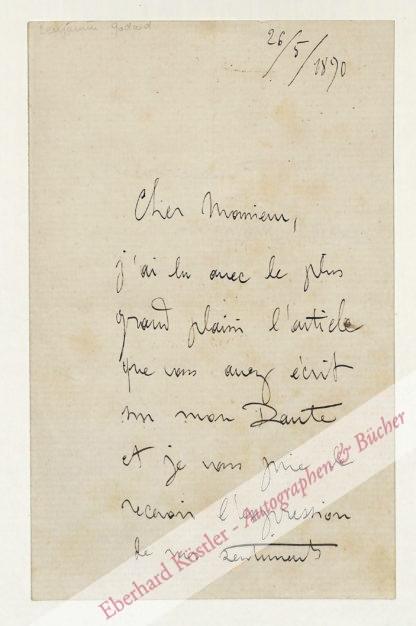 Benjamin Godard
26/5/1890
Cher Monsieur,
j'ai lu avec le plus
grand plaisir l'article
que vous avez écrit
sur mon Dante
et je vous prie de
recevoir l'expression
de mes sentiments
Eberhard Köstler - Autographen & Bücher